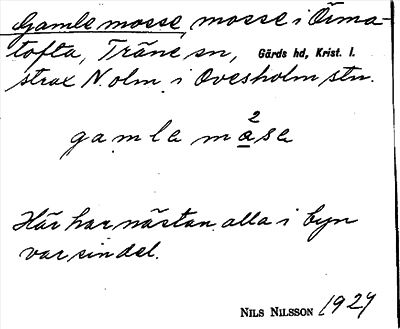 Gamle mosse, mosse i Örma-
tofta, Träne sn, Gärds hd, Krist. l.
strax N. om i Ovesholm stn.
gamle ma²se
Här har nästan alla i byn
var sin del.
NILS NILSSON 1927